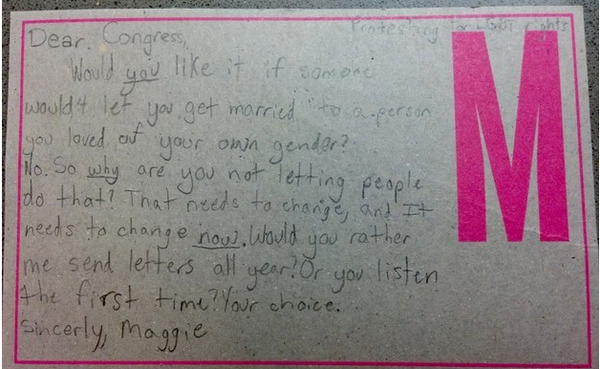 Protesting for LGBT rights
Dear. Congress,
Would you like it if someone
would't let you get married to a person
you loved of your own gender?
No. So why are you not letting people
do that? That needs to change, and It
needs to change now. Would you rather
me send letters all year? Or you listen
the first time? Your choice.
Sincerly, Maggie
M